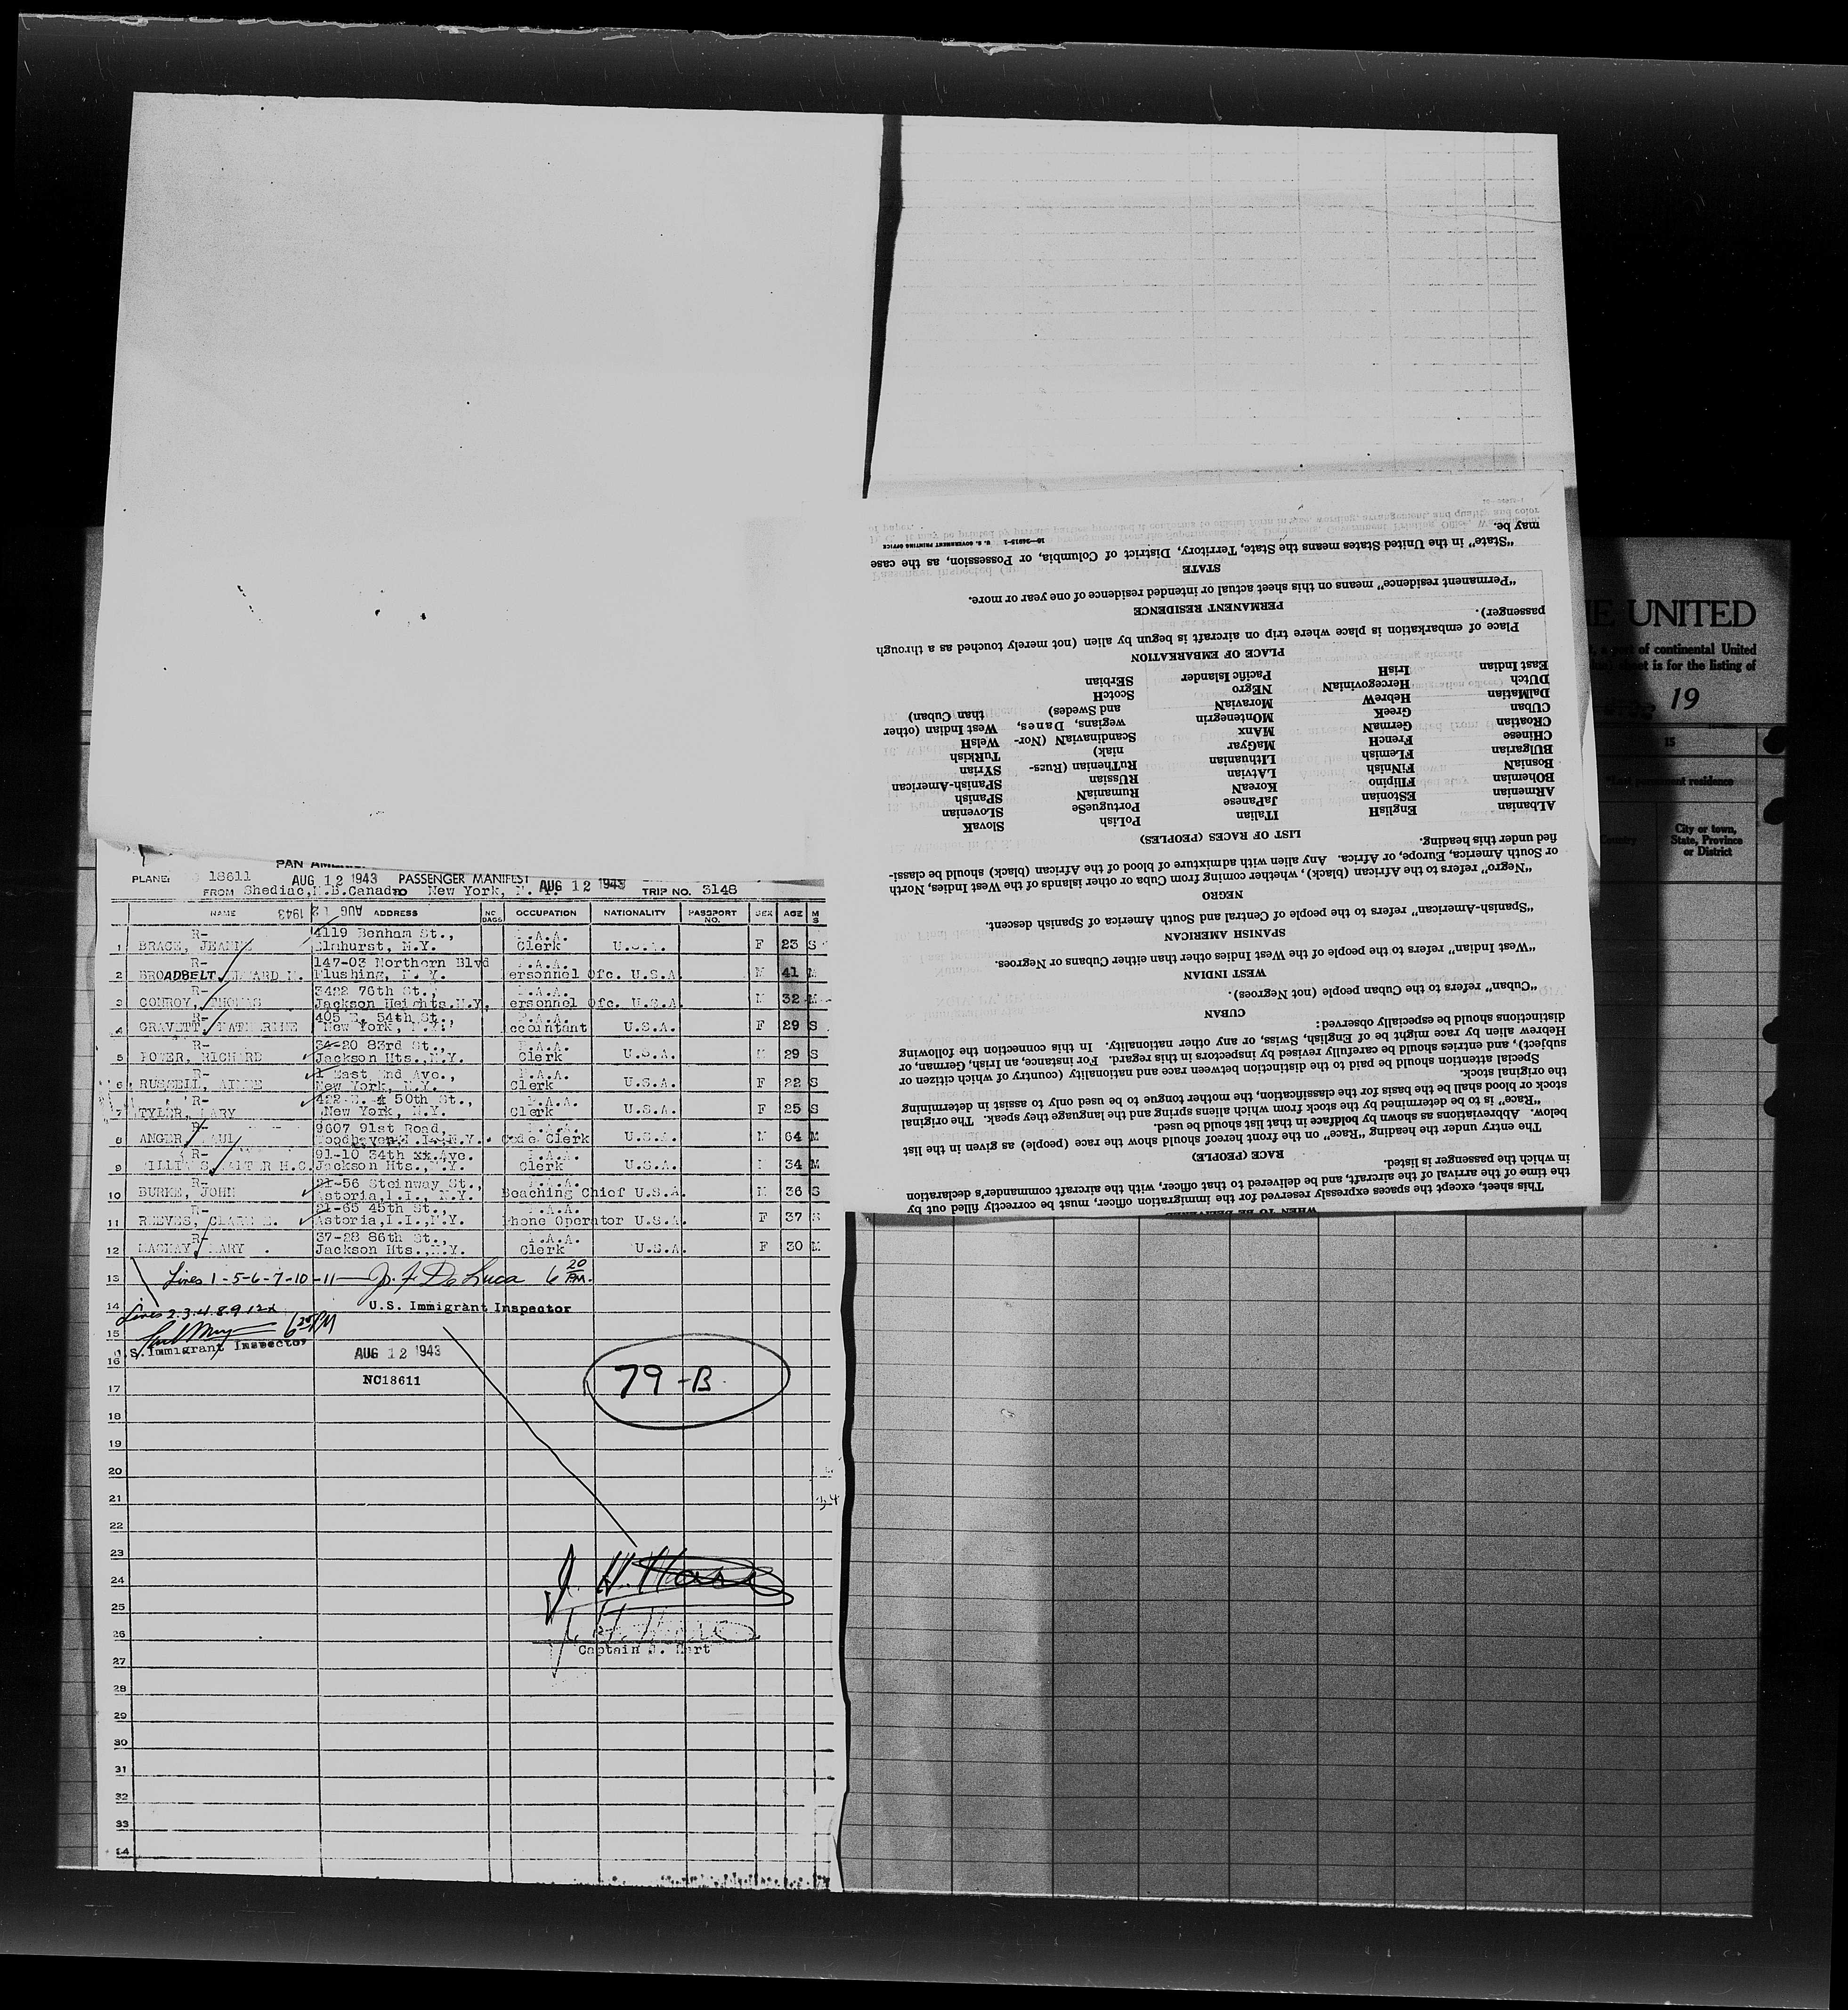 PLANE: 18611 AUG 12 1943 PASSENGER MANIFEST
FROM Shediac, N.B. Canada TO New York, N. Y. AUG 12 1943 TRIP NO. 3148
NAME AUG 12 1943 ADDRESS NO BAGS OCCUPATION NATIONALITY PASSPORT NO. SEX AGE M S
R- 4119 Benham St., P.A.A.
1 BRACE, JEANNE Elmhurst, N.Y. Clerk U.S.A. F 23 S
R- 147-03 Northern Blvd P.A.A.
2 BROADBELT, EDWARD M. Flushing, N. Y. ersonnel Ofc. U.S.A. M 41 M
R- 3422 76th St., P.A.A.
3 CONROY, THOMAS Jackson Heights, N.Y. ersonnel Ofc. U.S.A. M 32 M
R- 405 E. 54th St., P.A.A.
4 GRAVETT, KATHARINE New York, N.Y. ccountant U.S.A. F 29 S
R- 34-20 83rd St., P.A.A.
5 RICHARD Jackson Hts., N.Y. Clerk U.S.A. M 29 S
R- 1 East End Ave., P.A.A.
6 RUSSELL, AIMEE New York, N.Y. Clerk U.S.A. F 22 S
R- 422 E. 50th St., P.A.A.
7 TYLER, MARY New York, N.Y. Clerk U.S.A. F 25 S
R- 9607 91st Road, P.A.A.
8 ANGER, PAUL Woodhaven, L.I., N.Y. Code Clerk U.S.A. M 64 M
R- 91-10 34th xx. Ave. P.A.A.
9 WALTER H.C. Jackson Hts., N.Y. Clerk U.S.A. 34 M
R- 21-56 Steinway St., P.A.A.
10 BURKE, JOHN Astoria, L.I., N.Y. Beaching Chief U.S.A. M 36 S
R- 21-65 45th St., P.A.A.
11 REEVES, CLARE E. Astoria, L.I., N.Y. Phone Operator U.S.A. F 37 S
R- 37-28 86th St., P.A.A.
12 MACKAY, MARY Jackson Hts., N.Y. Clerk U.S.A. F 30 M
13 Lines 1-5-6-7-10-11 J. F. De Luca 6 20 PM.
14 U.S. Immigrant Inspector
Lines 2.3.4.8.9.12
15 6 20 PM
U.S. Immigrant Inspector
16 AUG 12 1943
NC18611
79-B
17
18
19
20
21
22
23
24
25
26
Captain J. Hart
27
28
29
30
31
32
33
34
WHEN TO BE DELIVERED
This sheet, except the spaces expressly reserved for the immigration officer, must be correctly filled out by
the time of the arrival of the aircraft, and be delivered to that officer, with the aircraft commander's declaration
in which the passenger is listed.
RACE (PEOPLE)
The entry under the heading "Race" on the front hereof should show the race (people) as given in the list
below. Abbreviations as shown by boldface in that list should be used.
"Race" is to be determined by the stock from which aliens spring and the language they speak. The original
stock or blood shall be the basis for the classification, the mother tongue to be used only to assist in determining
the original stock.
Special attention should be paid to the distinction between race and nationality (country of which citizen or
subject), and entries should be carefully revised by inspectors in this regard. For instance, an Irish, German, or
Hebrew alien by race might be of English, Swiss, or any other nationality. In this connection the following
distinctions should be especially observed:
CUBAN
"Cuban" refers to the Cuban people (not Negroes).
WEST INDIAN
"West Indian" refers to the people of the West Indies other than either Cubans or Negroes.
SPANISH AMERICAN
"Spanish-American" refers to the people of Central and South America of Spanish descent.
NEGRO
"Negro" refers to the African (black), whether coming from Cuba or other islands of the West Indies, North
or South America, Europe, or Africa. Any alien with admixture of blood of the African (black) should be classi-
fied under this heading.
LIST OF RACES (PEOPLES)
ALbanian EngliSH ITalian PoLish SlovaK
ARmenian EStonian JaPanese PortugueSe SLovenian
BOhemian FIlipino KoreaN RumaniaN SPanish
BosniaN FiNnish LAtvian RUssian SPanish-American
BUlgarian FLemish LIthuanian RuThenian (Russ- SYrian
CHinese FrencH MaGyar niak) TuRkish
CRoatian GermaN MAnx ScandinaviaN (Nor- WelsH
CUban GreeK MOntenegrin wegians, Danes, West Indian (other
DalMatian HebreW MoraviaN and Swedes) than Cuban)
DUtch HercegoviniaN NEgro ScotcH
East Indian IrisH Pacific Islander SErbian
PLACE OF EMBARKATION
Place of embarkation is place where trip on aircraft is begun by alien (not merely touched as a through
passenger).
PERMANENT RESIDENCE
"Permanent residence" means on this sheet actual or intended residence of one year or more.
STATE
"State" in the United States means the State, Territory, District of Columbia, or Possession, as the case
may be.
U. S. GOVERNMENT PRINTING OFFICE 16-24615-1
UNITED
of continental United
sheet is for the listing of
19
15
*Last permanent residence
Country
City or town,
State, Province
or District